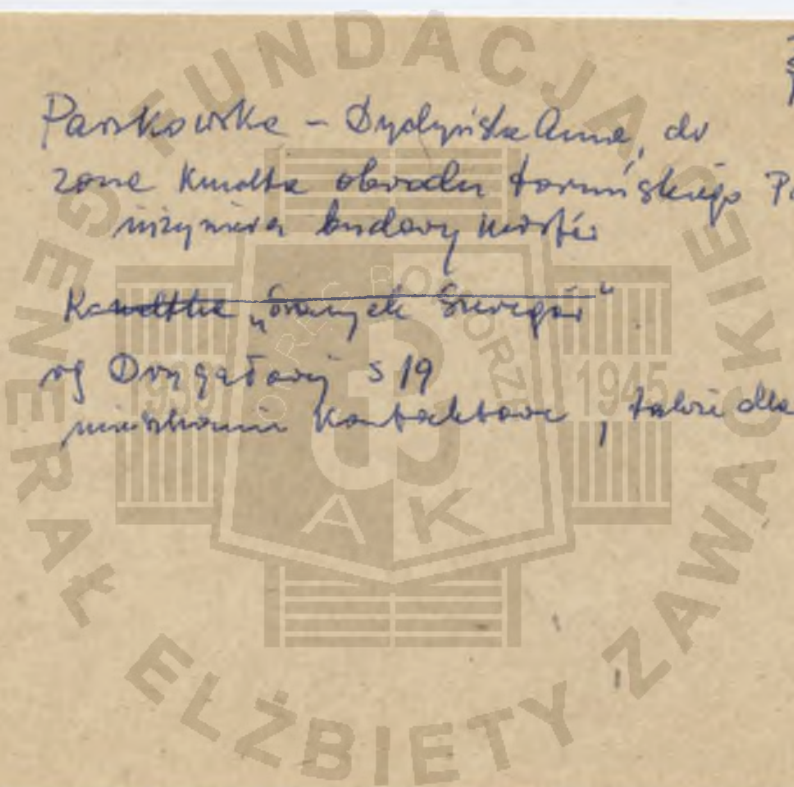 Pańkowska - Dydyńska Anna, dr
żona Kmdta obwodu toruńskiego
inżyniera budowy mostów
"Szarych Szeregów"
wg Drygałowej s 19
mieszkanie kontaktowe, także dla
FUNDACJA GENERAŁ ELŻBIETY ZAWACKIEJ
OKRĘG POMORZE
1939 1945
AK